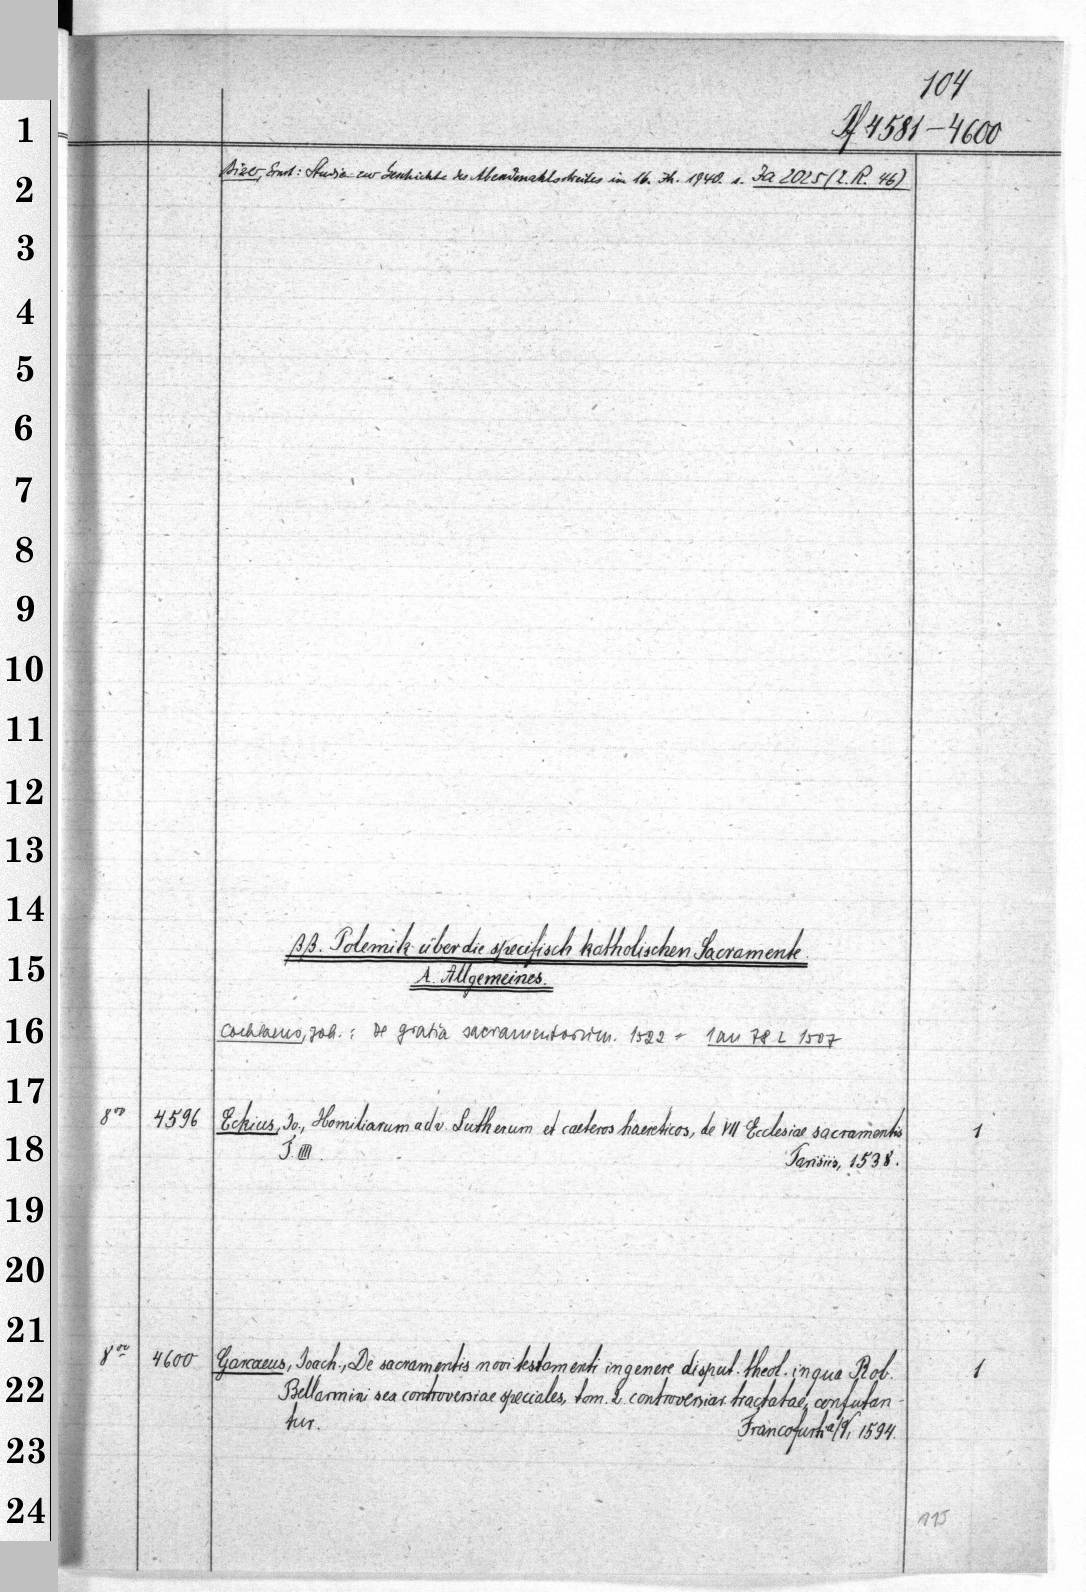 104
4581-4600
1
Bizer, Ernst: Studien zur Geschichte des Abendmahlsstreites im 16. Jh. 1940. s. Ja 2025 (2. R. 46)
2
3
4
5
6
7
8
9
10
11
12
13
14
ββ. Polemik über die specifisch katholischen Sacramente.
15
A. Allgemeines.
16
Cochlaeus, Joh.: De gratia sacramentorum. 1522 = 1 an 78 L 1507
17
8vo 4596 Eckius, Jo., Homiliarum adv. Lutherum et caeteros haereticos, de VII Ecclesiae sacramentis 1
18
T. IIII. Parisiis, 1538.
19
20
21
8vo 4600 Garcaeus, Joach., De sacramentis novi testamenti in genere disput. theol. in qua Rob. 1
22
Bellarmini sex controversiae speciales, tom. 2. controversiar. tractatae, confutan-
tur. Francofurti a/V, 1594.
23
24
115